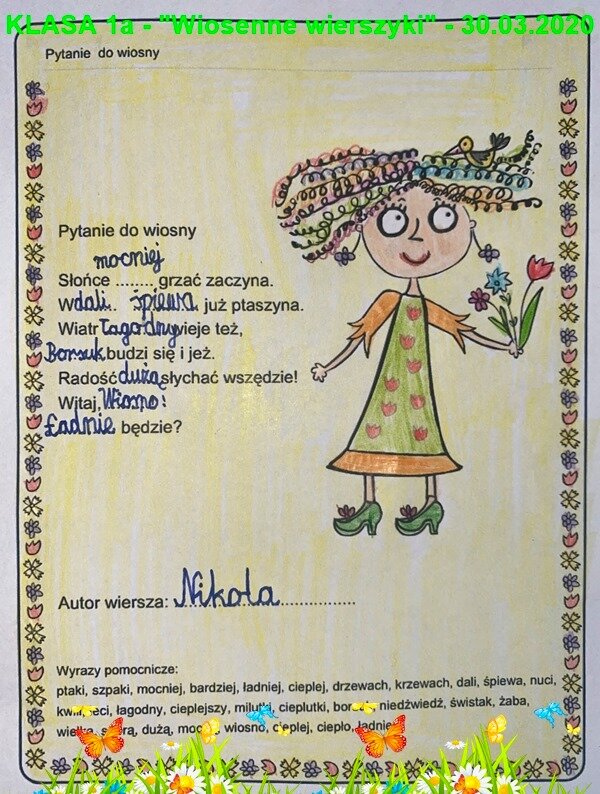 KLASA 1a - "Wiosenne wierszyki" - 30.03.2020
Pytanie do wiosny
Pytanie do wiosny
mocniej
Słońce ........ grzać zaczyna.
W dali . śpiewa już ptaszyna.
Wiatr łagodny wieje też,
Borsuk budzi się i jeż.
Radość dużą słychać wszędzie!
Witaj, Wiosno!
Ładnie będzie?
Autor wiersza: Nikola
Wyrazy pomocnicze:
ptaki, szpaki, mocniej, bardziej, ładniej, cieplej, drzewach, krzewach, dali, śpiewa, nuci,
łagodny, cieplejszy, milutki, cieplutki, niedźwiedź, świstak, żaba,
dużą, wiosno, cieplej, ciepło,